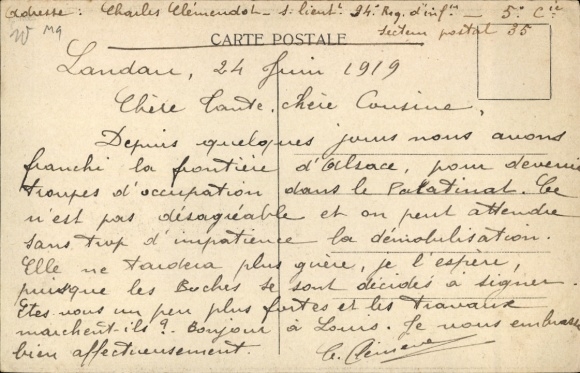 Adresse : Charles Clémendot – s. lieutt 94e Reg. d'infie – 5e Cie
Secteur postal 35
CARTE POSTALE
Landau, 24 Juin 1919
Chère Tante, chère Cousine,
Depuis quelques jours nous avons
franchi la frontière d'Alsace, pour devenir
troupes d'occupation dans le Palatinat. Ce
n'est pas désagréable et on peut attendre
sans trop d'impatience la démobilisation.
Elle ne tardera plus guère, je l'espère,
puisque les Boches se sont décidés à signer.
Etes-vous un peu plus fortes et les travaux
marchent-ils ?. Bonjour à Louis. Je vous embrasse
bien affectueusement.